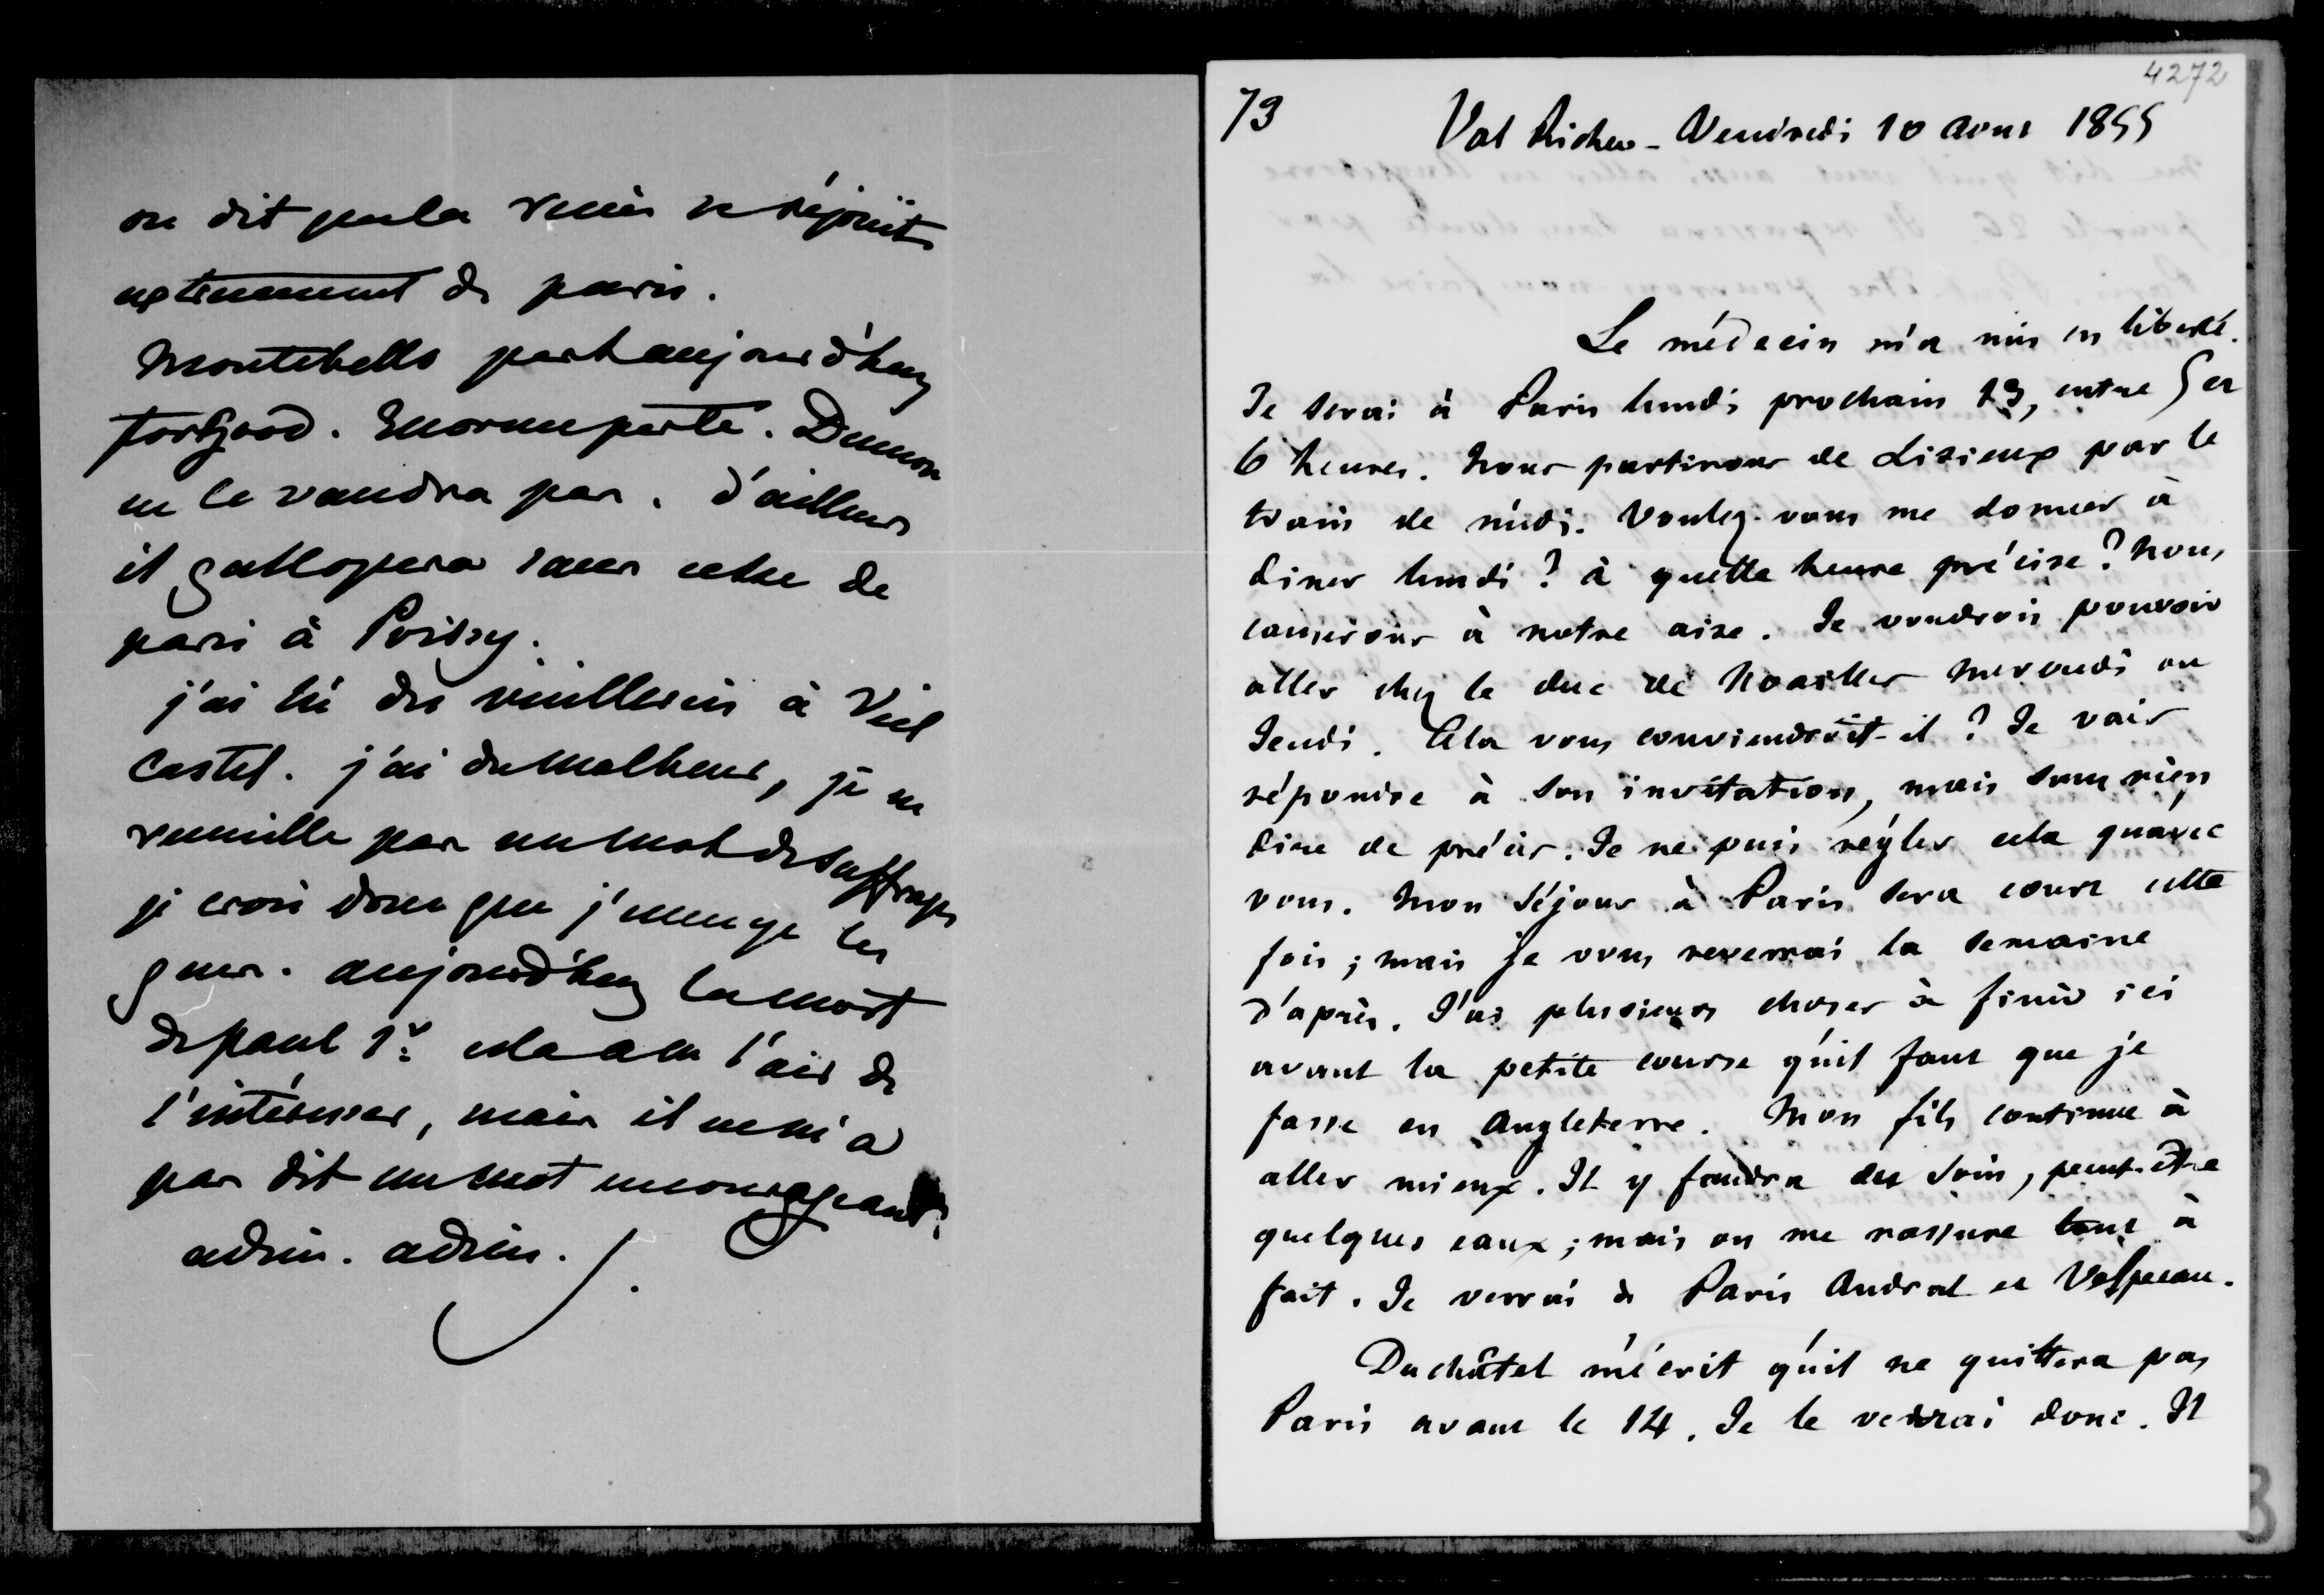 on dit que la reine se réjouit
extrêmement de paris.
Montebello part aujourd'huy
for good. Enorme perte. Dumon
ne le vaudra pas. d'ailleurs
il gallopera sans cesse de
paris à Poissy.
j'ai lu des vieilleries à Viel
Castel. j'ai du malheur, je ne
recueille pas un mot de suffrage
je crois donc que j'ennuye les
gens. aujourd'huy la mort
de paul 1er cela a eu l'air de
l'intéresser, mais il ne m'a
pas dit un mot encourageant.
adieu. adieu.
4272
73
Val Richer - Vendredi 10 Aout 1855
Le médecin m'a mis en liberté.
Je serai à Paris lundi prochain 13, entre 5 et
6 heures. Nous partirons de Lisieux par le
train de midi. Voulez-vous me donner à
diner lundi ? à quelle heure précise ? Nous
causerons à notre aise. Je voudrois pouvoir
aller chez le duc de Noailles mercredi ou
Jeudi. Cela vous conviendroit-il ? Je vais
répondre à son invitation, mais sans rien
dire de précis. Je ne puis régler cela qu'avec
vous. Mon séjour à Paris sera court cette
fois ; mais je vous reverrai la semaine
d'après. J'ai plusieurs choses à finir ici
avant la petite course qu'il faut que je
fasse en Angleterre. Mon fils continue à
aller mieux. Il y faudra des soins, peut-être
quelques eaux ; mais on me rassure tout à
fait. Je verrai à Paris Andral et Velpeau.
Duchâtel m'écrit qu'il ne quittera pas
Paris avant le 14. Je le verrai donc. Il